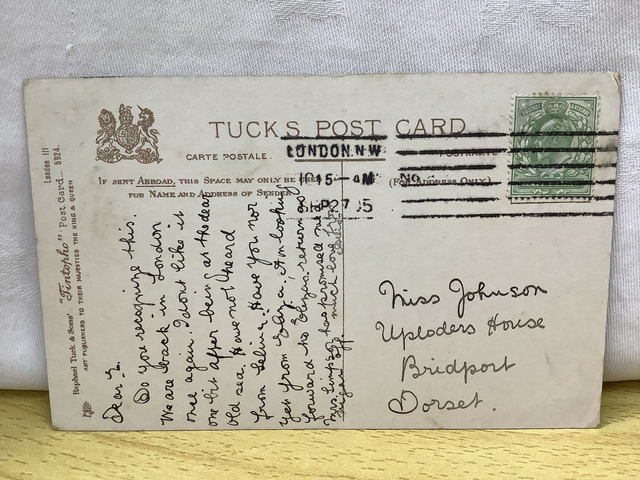 TUCK'S POST CARD
CARTE POSTALE.
POSTKARTE
IF SENT ABROAD, THIS SPACE MAY ONLY BE USED
FOR NAME AND ADDRESS OF SENDER
(FOR ADDRESS ONLY.)
LONDON.N.W
15 - AM
SEP 27 05
London III
5924.
Raphael Tuck & Sons' "Tintopho" Post Card
ART PUBLISHERS TO THEIR MAJESTIES THE KING & QUEEN
Dear
Do you recognize this.
We are back in London
once again. I don't like it
one bit after being at the dear
old sea. Have not heard
from Selina. Have you not
yet from Eliza. Am looking
forward to return
Mrs. Simpson has promised me
much love from
Miss Johnson
Uploders House
Bridport
Dorset.